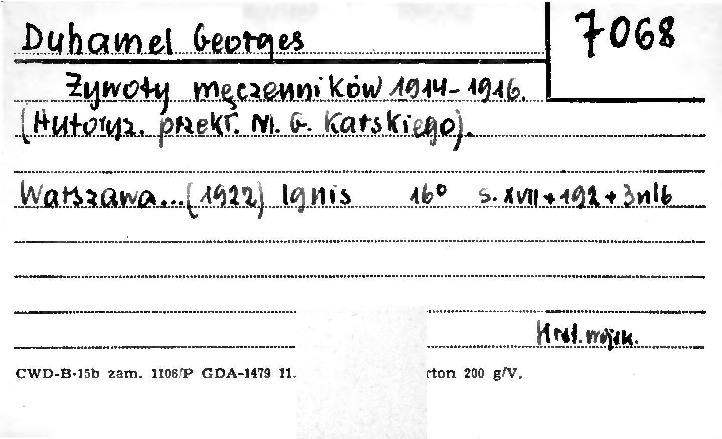 Duhamel Georges
7068
Żywoty męczenników 1914-1916.
(Autoryz. przekł. M. G. Karskiego).
Warszawa...(1922) Ignis 16° s. XVII+192+3nlb
wojsk.
CWD-B-15b zam. 1106/P GDA-1479 11. rton 200 g/V.